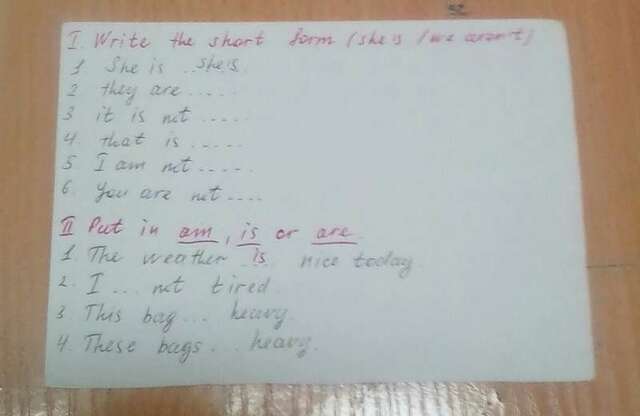 I. Write the short form (she is / we aren't)
1. She is ..she's.
2. they are .....
3 it is not .....
4. that is .....
5 I am not .....
6. you are not ....
II Put in am, is or are.
1. The weather .is. nice today.
2. I ... not tired.
3 This bag... heavy.
4. These bags... heavy.